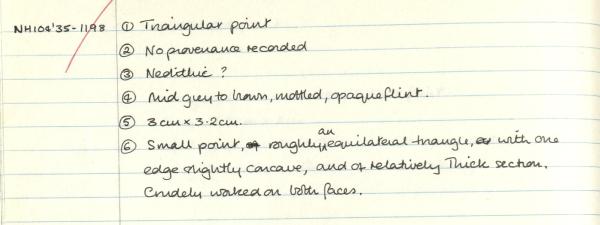 NH104'35-1198 ① Triangular point
② No provenance recorded
③ Neolithic ?
④ Mid grey to brown, mottled, opaque flint.
⑤ 3cm x 3.2cm.
⑥ Small point, roughly an equilateral triangle, with one
edge slightly concave, and of relatively thick section.
Crudely worked on both faces.